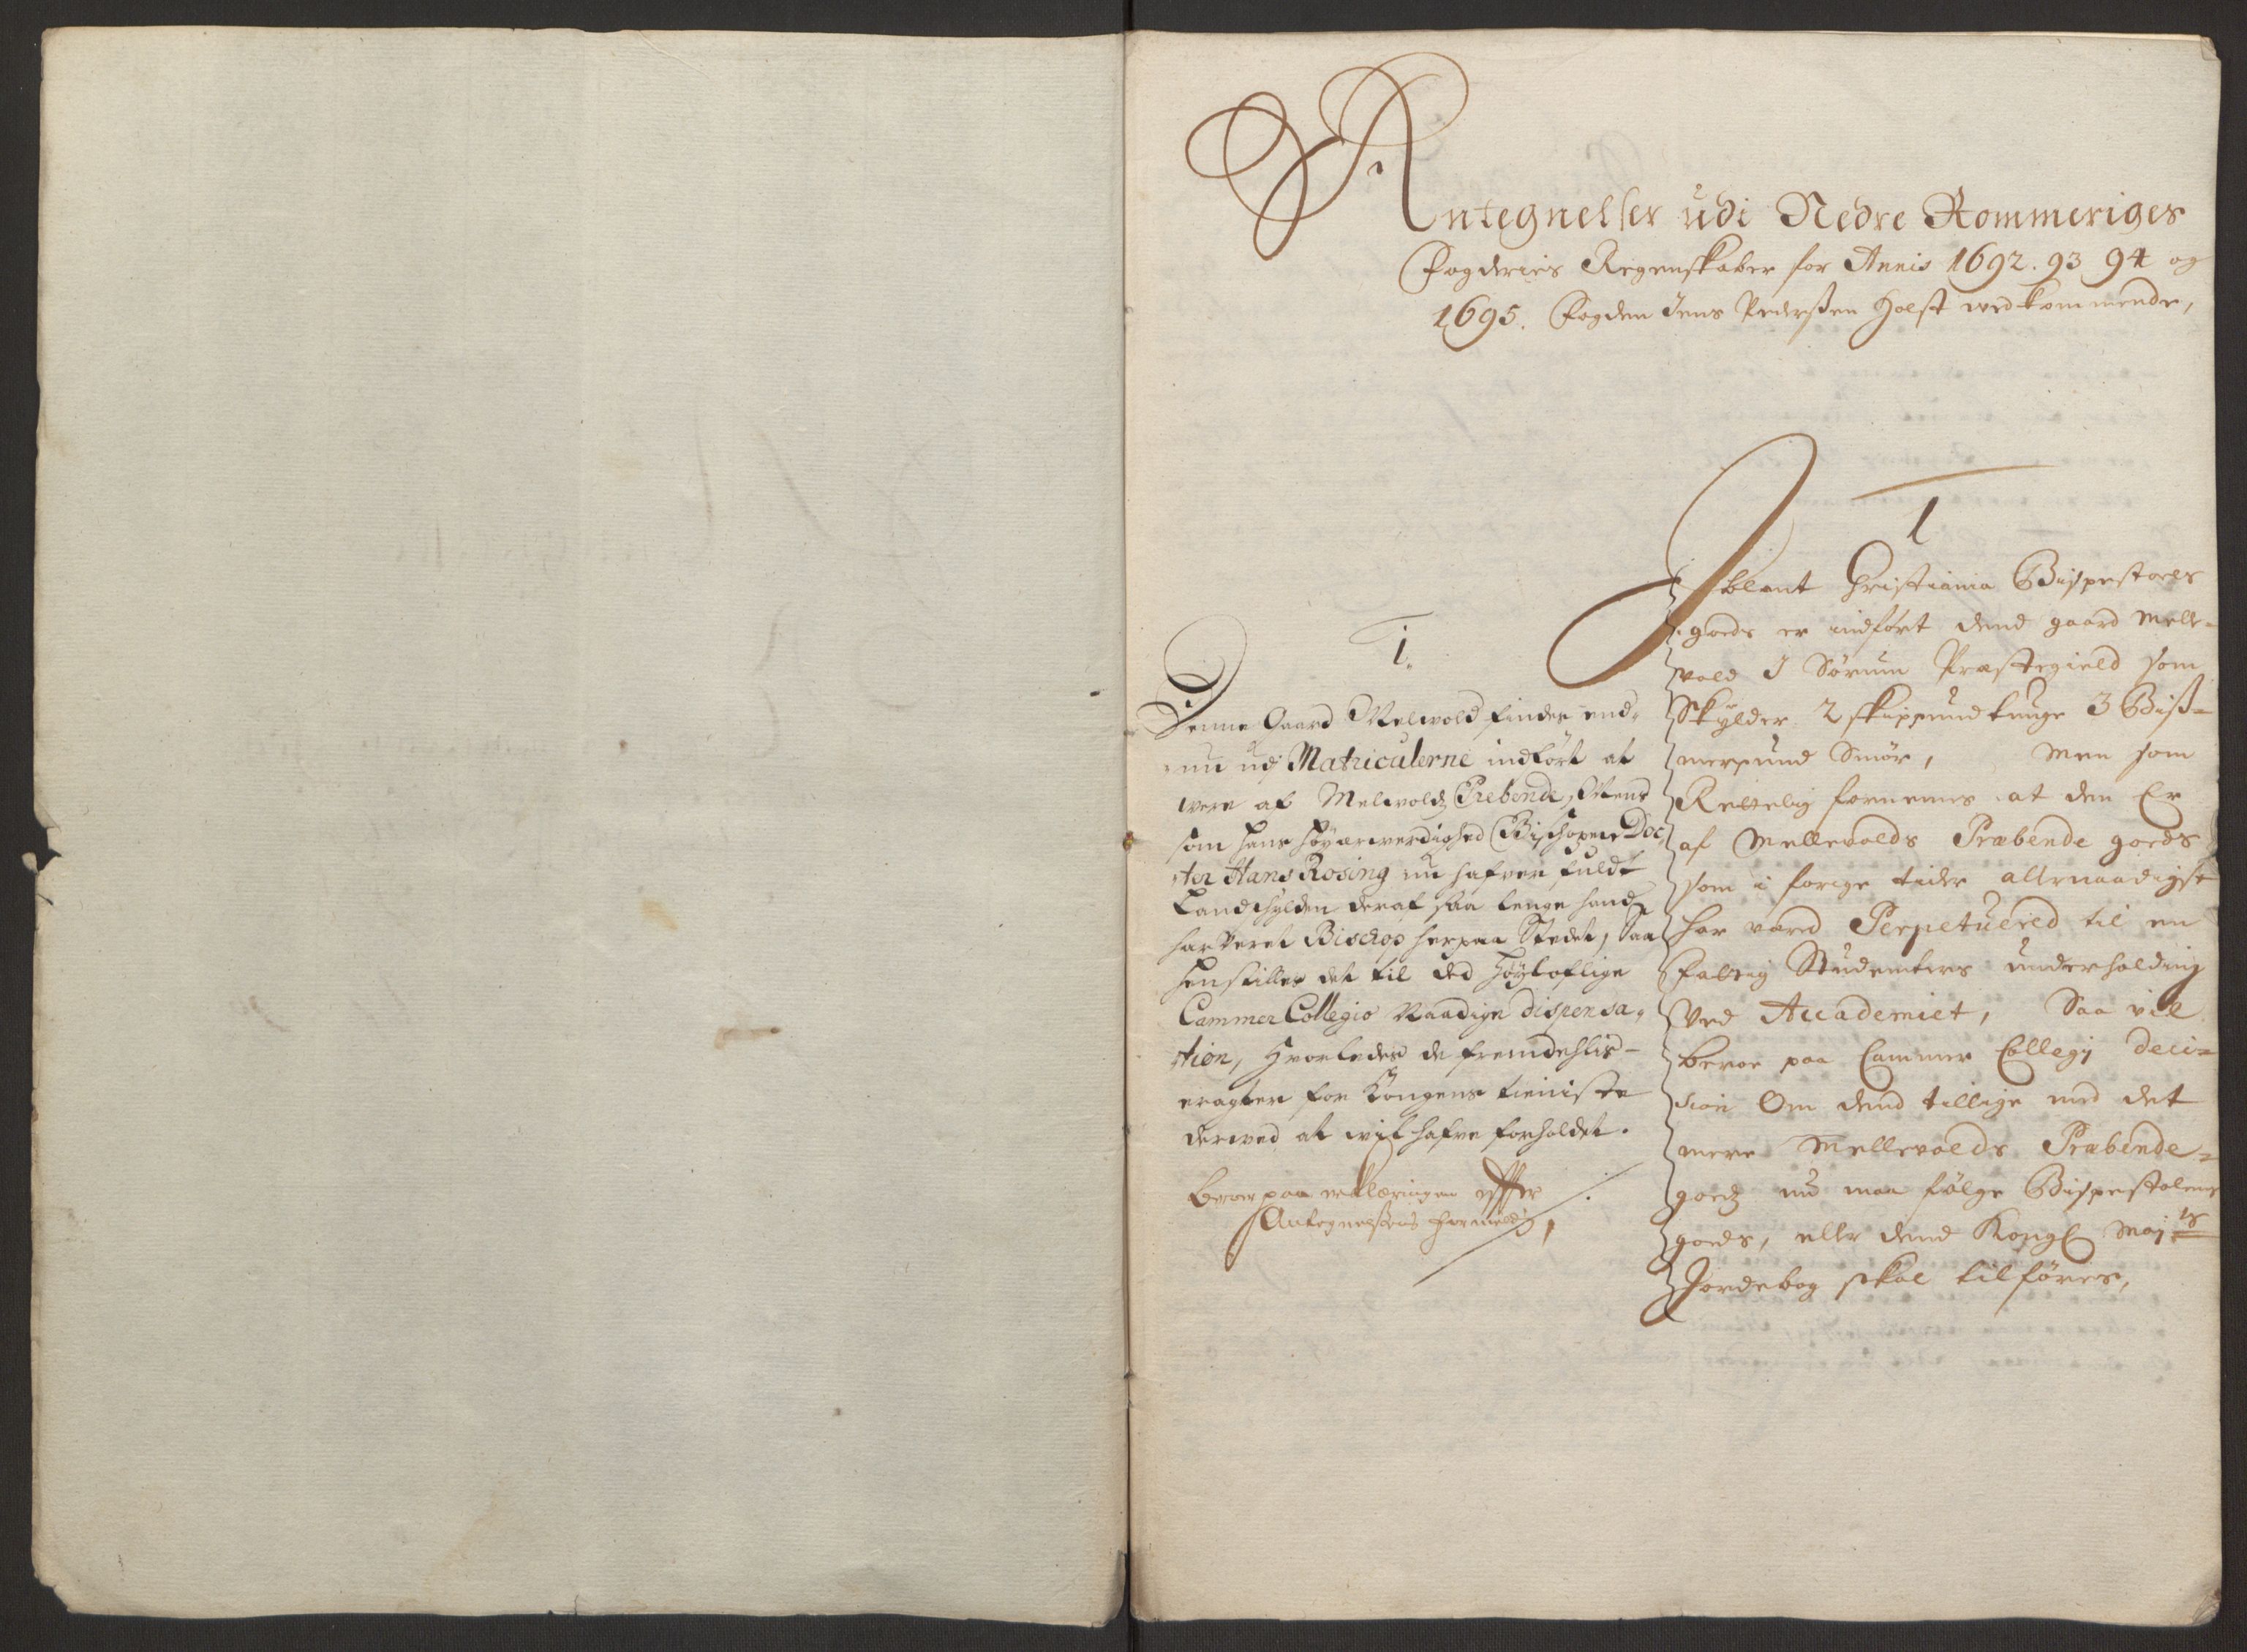 Antegnelser udi Nedre Rommeriges
Fogderies Regenskaber for Annis 1692. 93 94 og
1695. Fogden Jens Pederßen Holst vedkommende,
1
Iblant Christiania Bispestoels
goeds er indført dend gaard Melle-
vold I Sørum Præstegield som
Skylder 2 skippund tunge 3 Biß-
merpund Smør, Men som
Rettelig fornemes at den Er
af Mellevolds Præbende goeds
som i forige tider allernaadigst
har væred Perpetuered til en
fattig Studenters underholding
Ved Accademiet, Saa vil
beroe paa Cammer Collegij Deci-
sion Om dend tillige med det
mere Mellevolds Præbende-
goedz nu maa følge Bispestolens
goeds, eller dend Kongl Maj:ts
Jordebog skal tilføres,
1.
Denne Gaard Melvold findes end-
nu udj Matriculerne indført at
were af Melvolds Prebende, Mens
som hans Høyærverdighed Bischopen Doc,
,tor Hans Rosing nu hafver fuldt
Landschylden deraf saa lenge hand
har veret Bischop her paa Stedet, Saa
henstilles det til ded Høyloflige
Cammer Collegio Naadige dispensa,
,tion, Hvorledes de fremdehlis-
eragter for Kongens tieniste
derved at vil hafve forholdet.
Beroer paa erklæringen effter
Antegnelsens formeld,